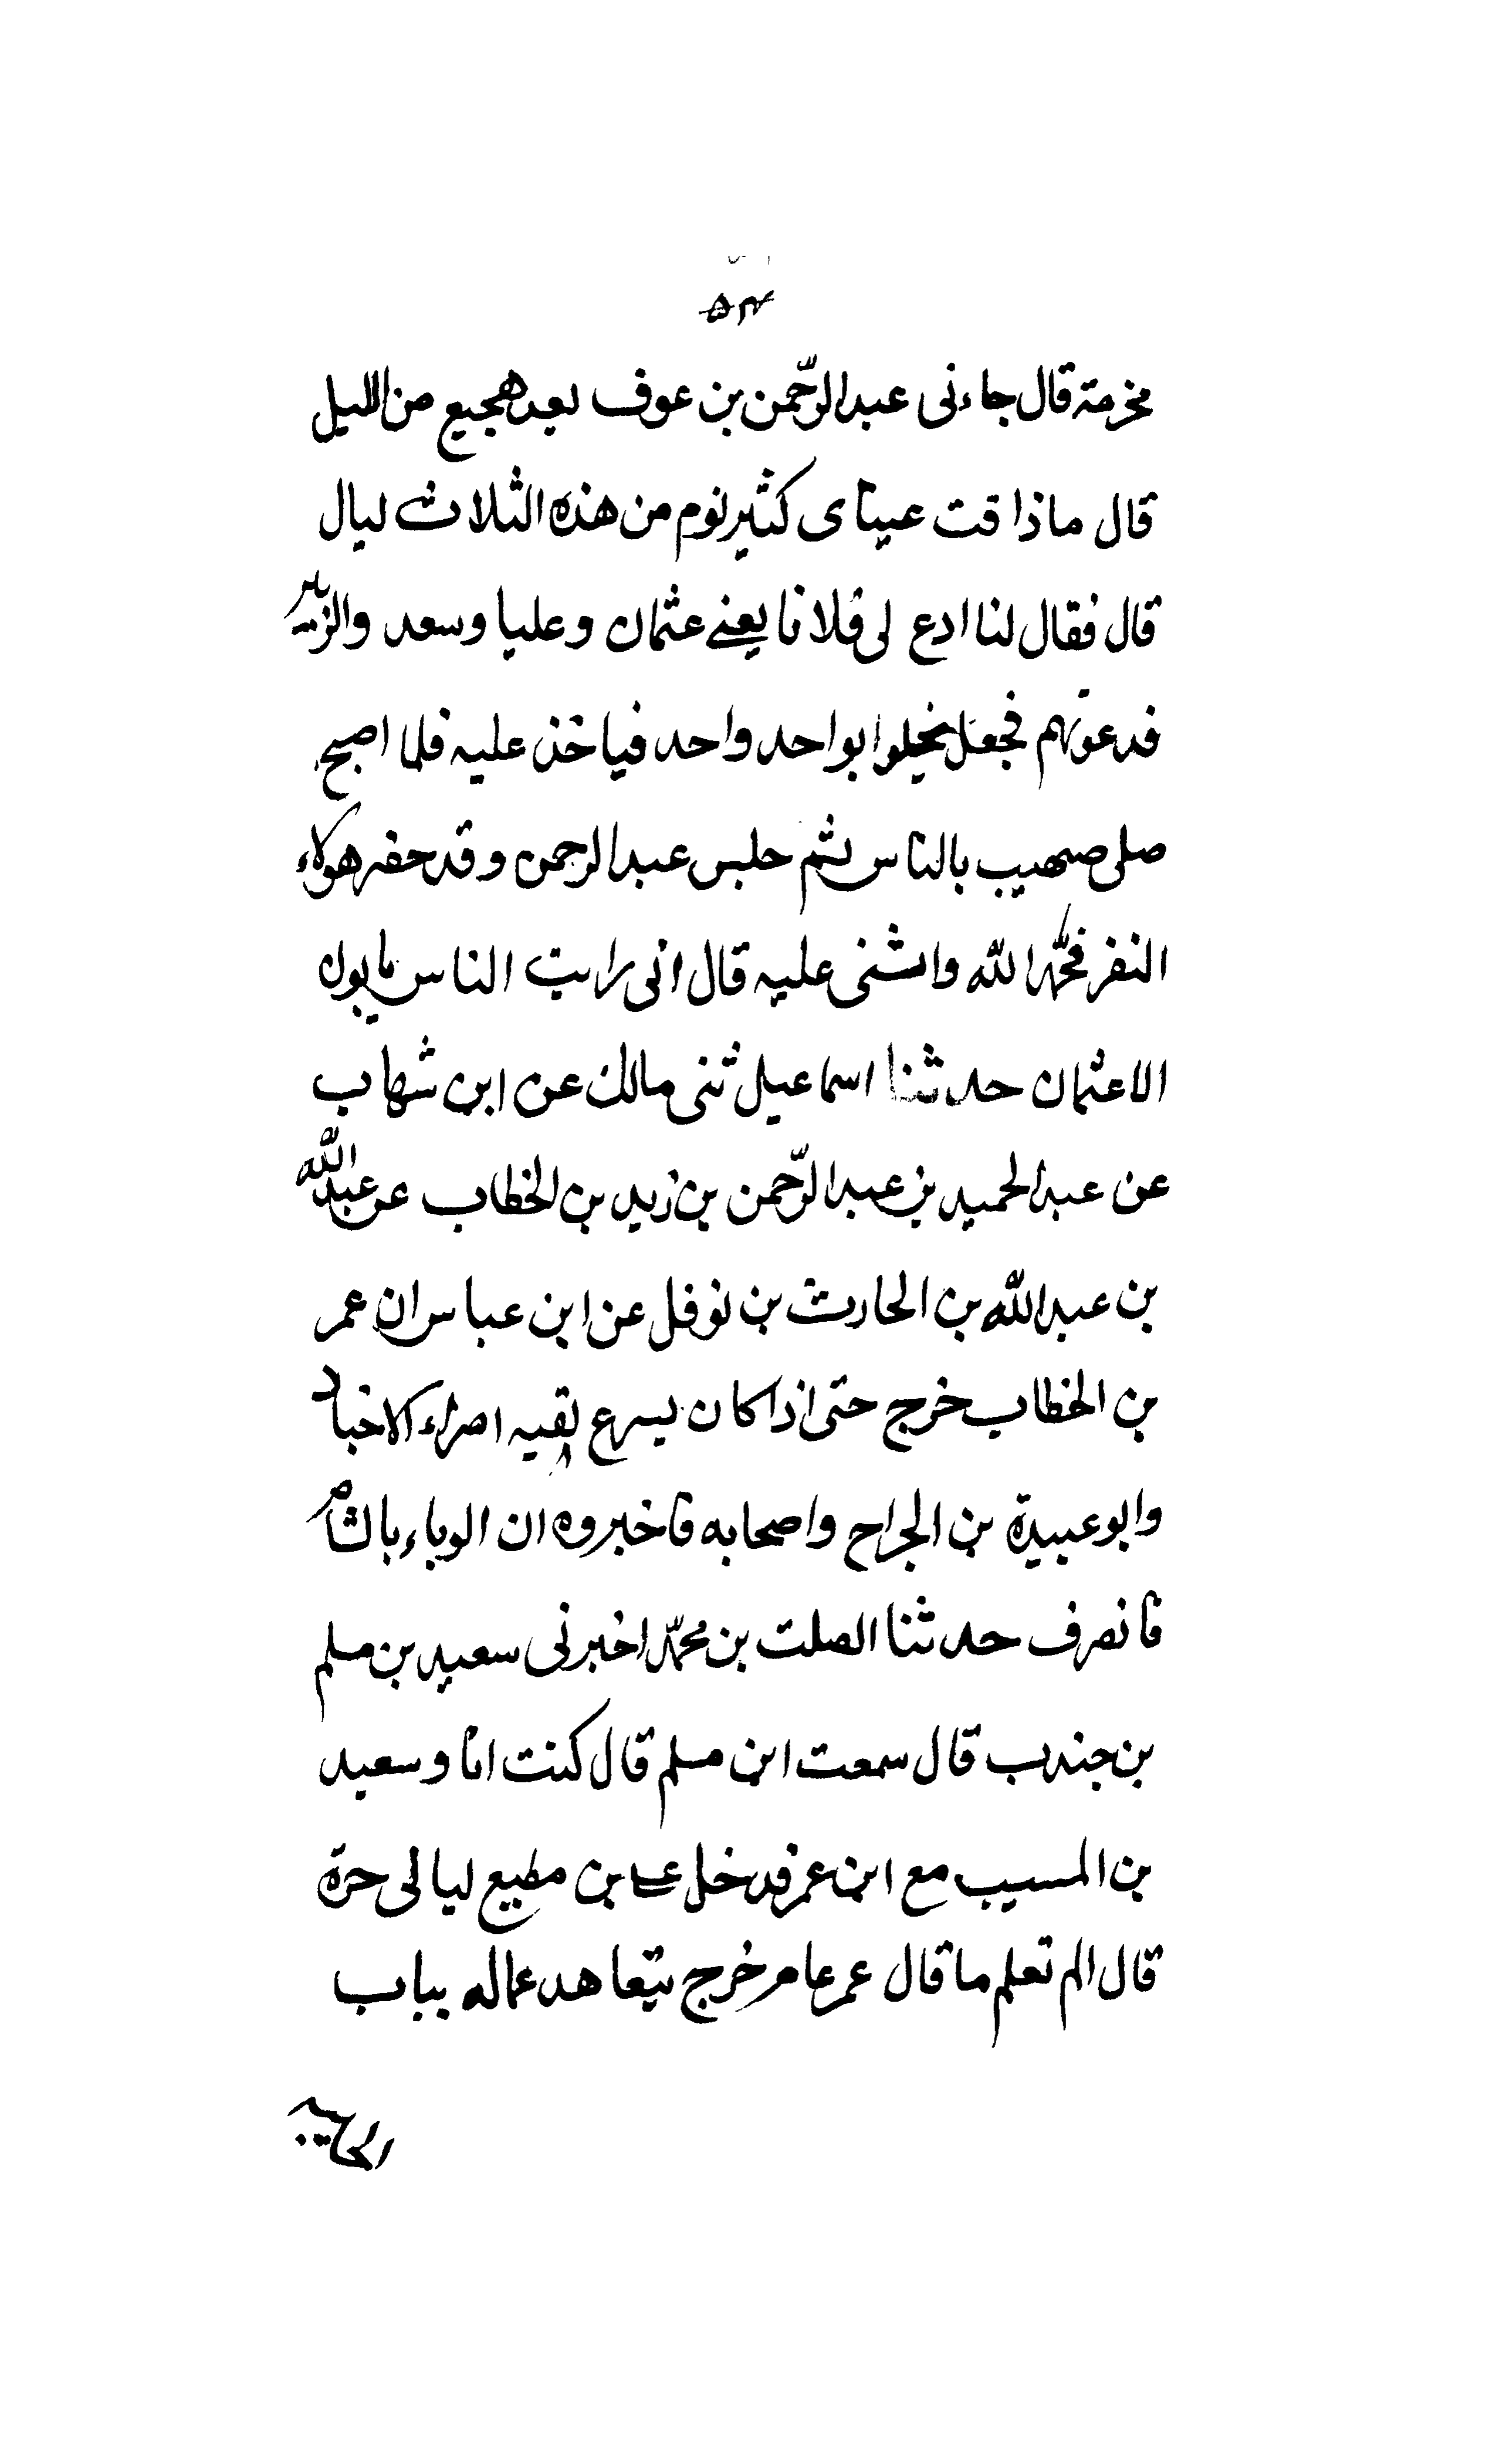 ۵۳
مخرمة قال جاءنى عبدالرّحمن بن عوف بعد هجيع من الليل
قال ماذاقت عيناى كثير نوم من هذه الثلاث ليال
قال فقال لنا ادع لى فلانا يعنے عثمان وعليا وسعد والزبير
فدعوتهم فجعل يخلوا بواحد واحد فياخذ عليه فلما اصبح
صلى صهيب بالناس ثم جلس عبدالرحمن وقد حفه هولاء
النفر فحمد الله واثنى عليه قال انى رايت الناس يابون
الا عثمان حدثنا اسماعيل ثنى مالك عن ابن شهاب
عن عبدالحميد بن عبدالرّحمن بن زيد بن الخطاب عن عبدالله
بن عبدالله بن الحارث بن نوفل عن ابن عباس ان عمر
بن الخطاب خرج حتى اذا كان بسرع لقيه امراء الاخباد
وابو عبيدة بن الجراح واصحابه فاخبروه ان الوباء بالشام
فانصرف حدثنا الصلت بن محمّد اخبرنى سعيد بن مسلم
بن جندب قال سمعت ابن مسلم قال كنت انا وسعيد
بن المسيب مع ابن عمر فدخل علے بن مطيع ليالى حرة
قال الم تعلم ما قال عمر عام خرج يتعاهد عماله بباب